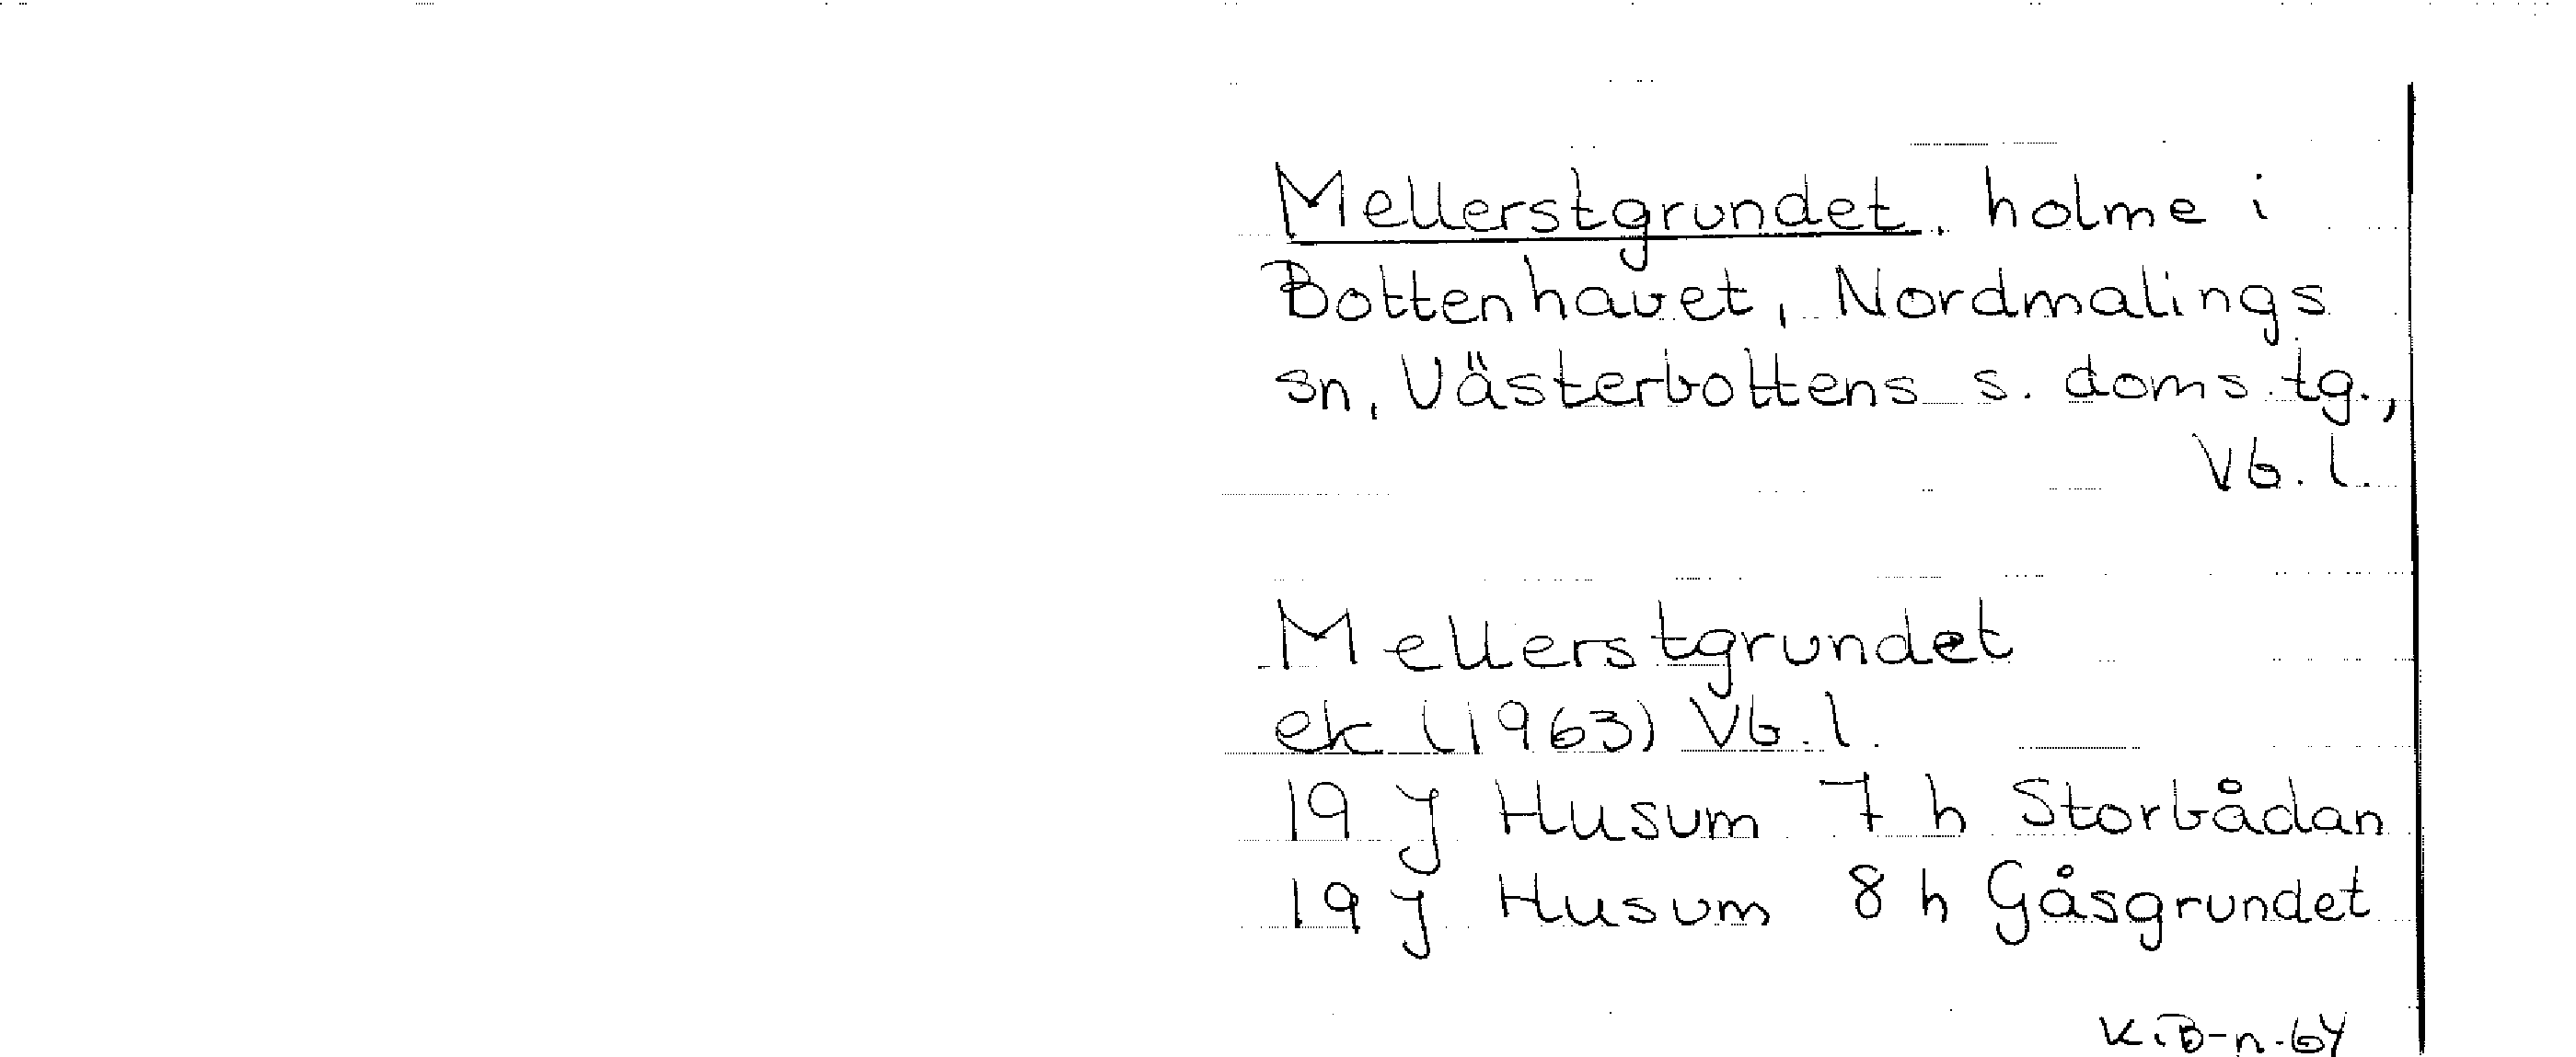 Mellerstgrundet, holme i
Bottenhavet, Nordmalings
sn, Västerbottens s. doms.tg.,
Vb. l.
Mellerstgrundet
ek (1963) Vb. l.
19 J Husum 7 h Storbådan
19 J Husum 8 h Gåsgrundet
K.B-n.64